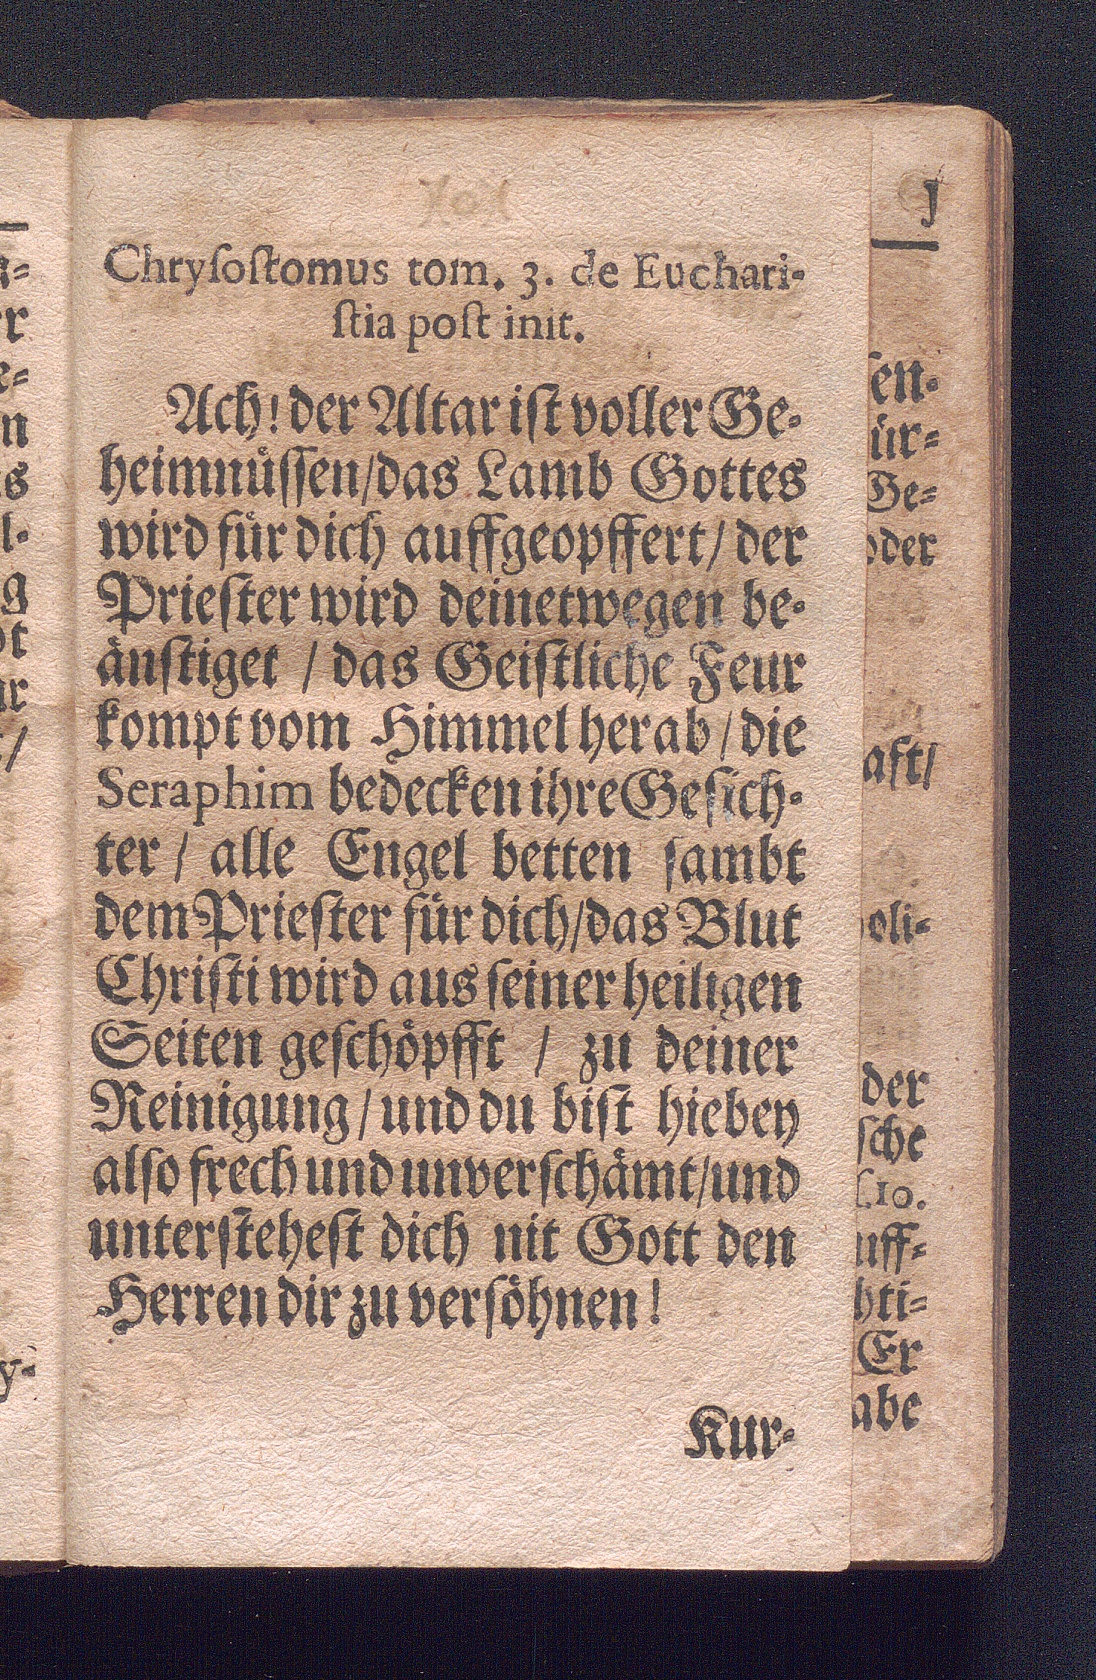 Chryſoſtomus tom. 3. de Euchari-
ſtia poſt init.
Ach! der Altar iſt voller Ge-
heimnüſſen/das Lamb Gottes
wird für dich auffgeopffert/ der
Prieſter wird deinetwegen be-
äuſtiget / das Geiſtliche Feur
kompt vom Himmel herab / die
Seraphim bedecken ihre Geſich-
ter / alle Engel betten ſambt
dem Prieſter für dich/das Blut
Chriſti wird aus ſeiner heiligen
Seiten geſchöpfft / zu deiner
Reinigung/ und du biſt hiebey
alſo frech und unverſchämt/und
unterſteheſt dich nit Gott den
Herren dir zu verſöhnen!
Kur-